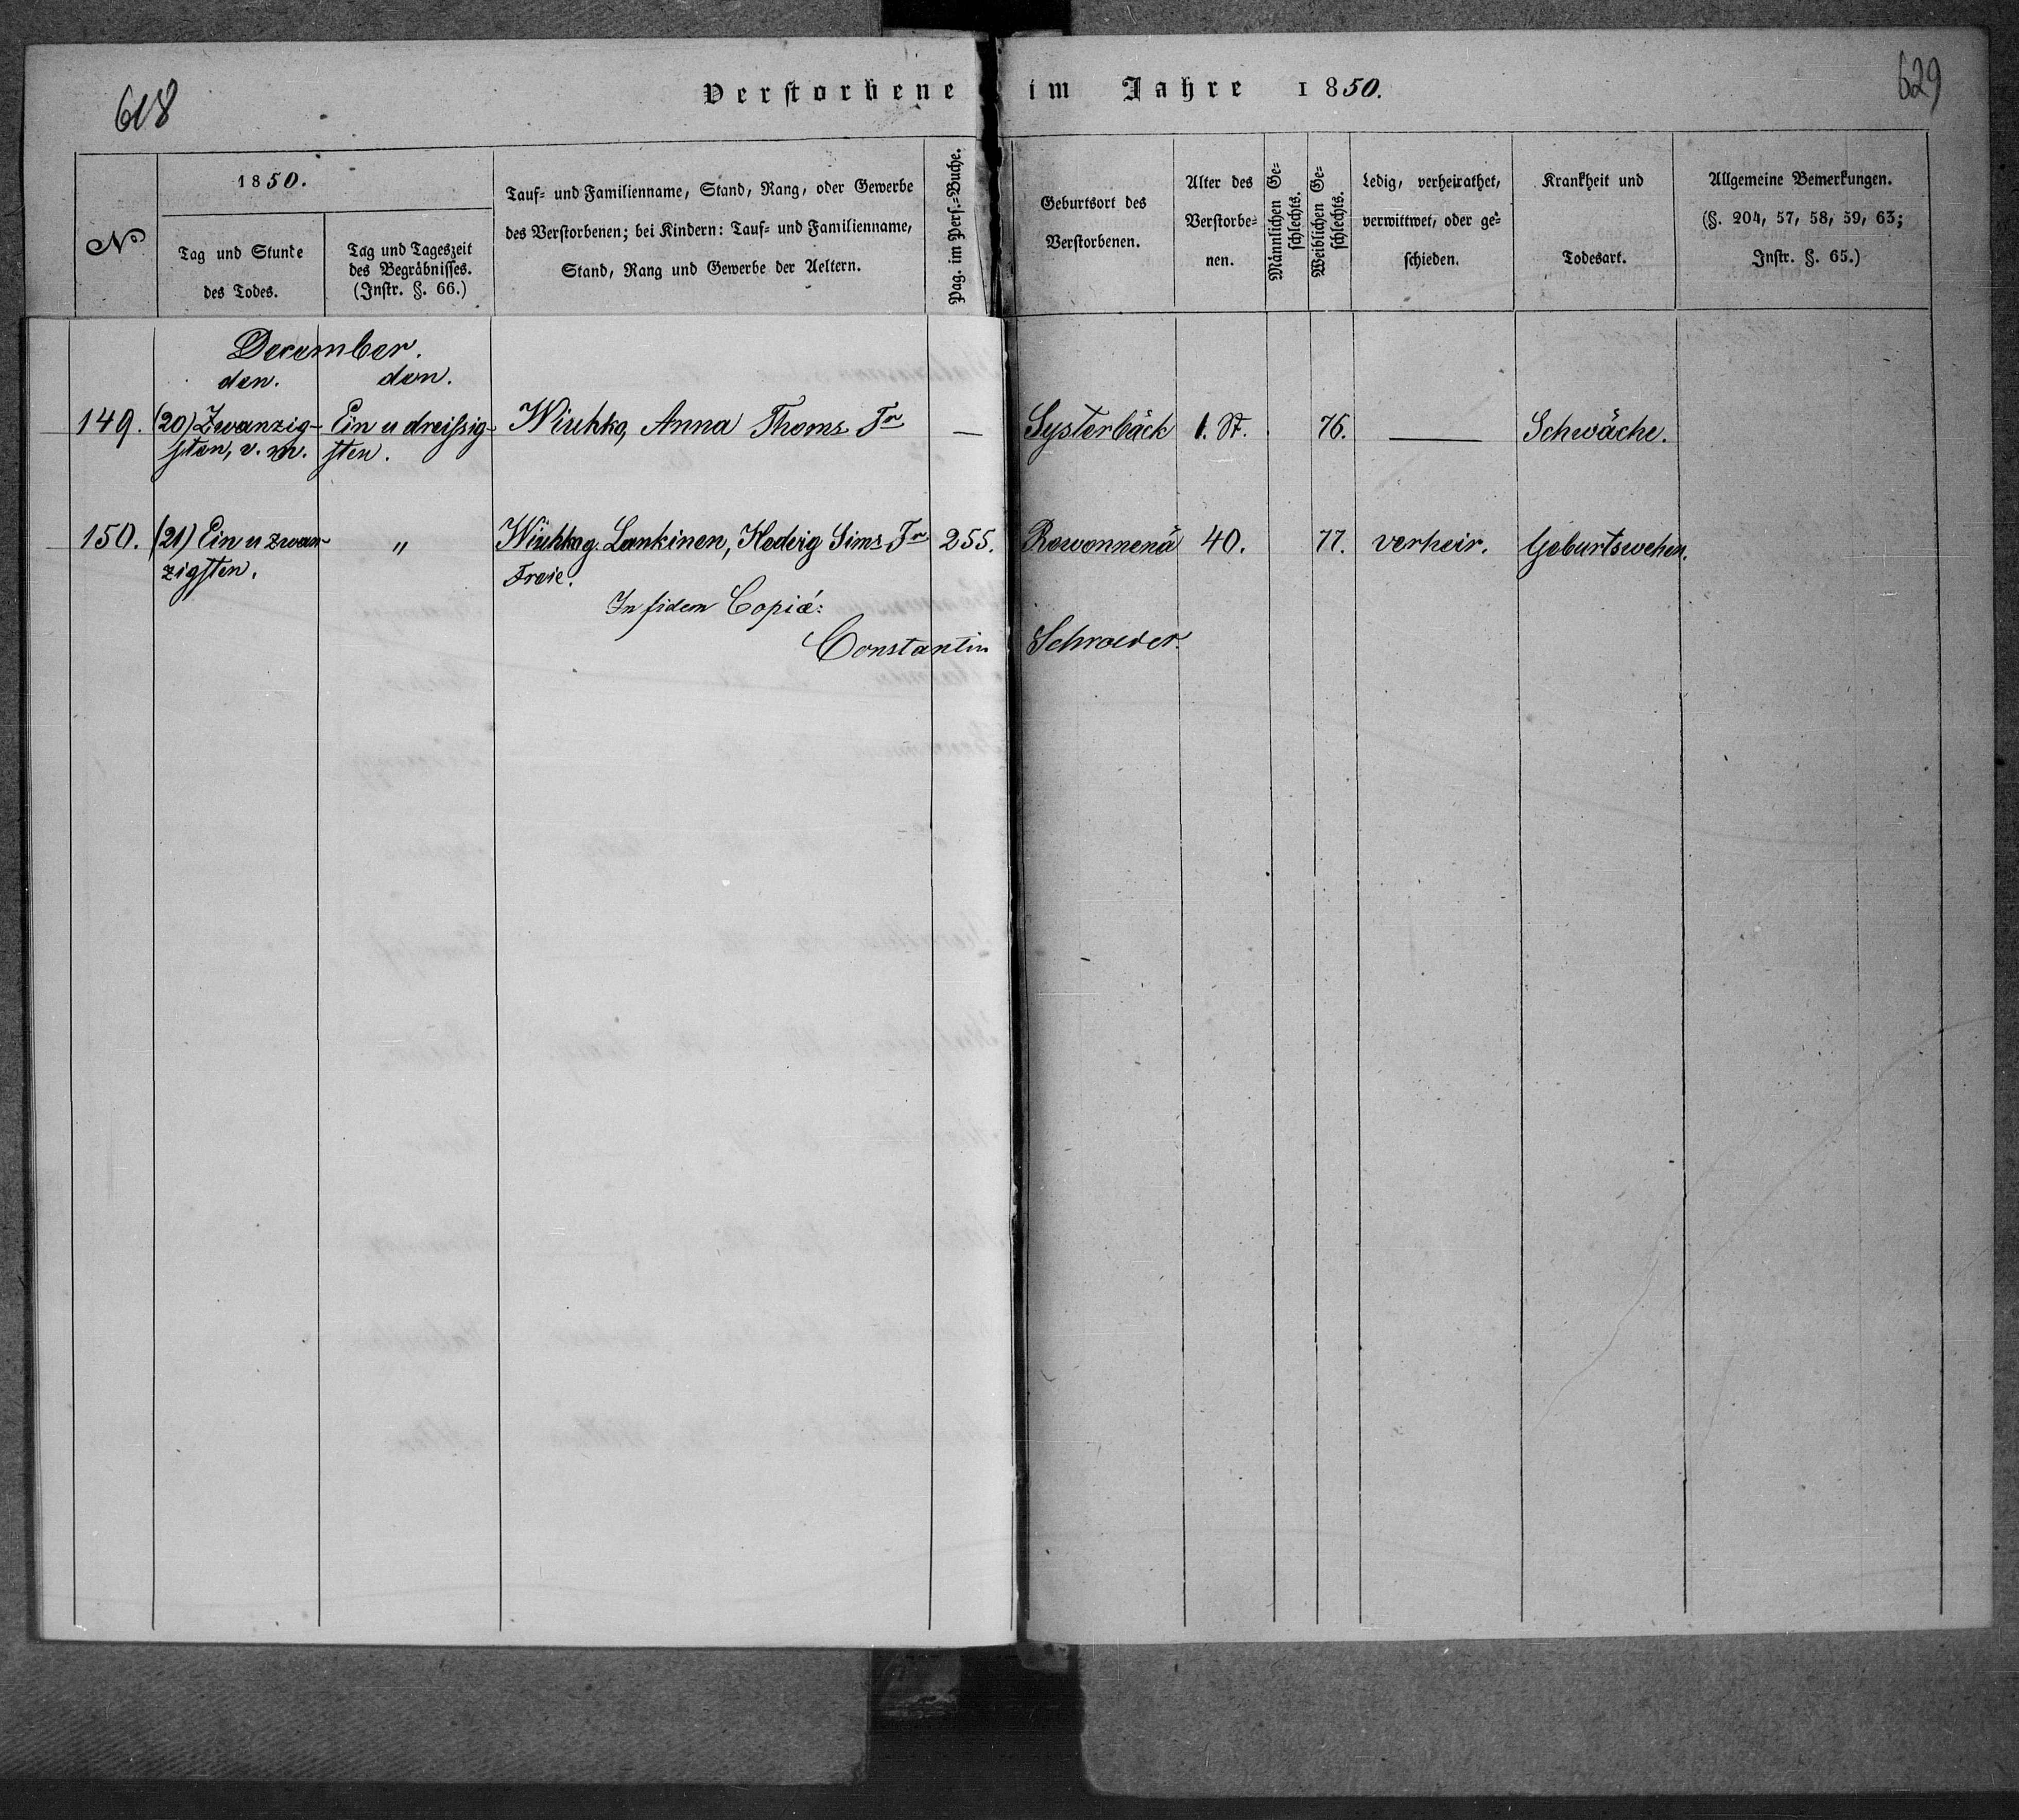 618
629
Verstorbene im Jahre 1850.
№
1850.
Tag und Stunde
des Todes.
Tag und Tageszeit
des Begräbnisses.
(Instr. §. 66.)
Tauf- und Familienname, Stand, Rang, oder Gewerbe
des Verstorbenen; bei Kindern: Tauf- und Familienname,
Stand, Rang und Gewerbe der Aeltern.
Pag. im Pers.-Buche.
Geburtsort des
Verstorbenen.
Alter des
Verstorbe-
nen.
Männlichen Ge-
schlechts.
Weiblichen Ge-
schlechts.
Ledig, verheirathet,
verwittwet, oder ge-
schieden.
Krankheit und
Todesart.
Allgemeine Bemerkungen.
(§. 204, 57, 58, 59, 63;
Instr. §. 65.)
December.
den. den.
149. (20) Zwanzig- Ein u dreissig- Wiuhko, Anna Thoms Tr — Systerbäck 1. St. 76. — Schwäche.
sten, v. m. sten.
150. (21) Ein u zwan- " Wiuhko g. Lankinen, Hedvig Sims Tr 255. Rowonnenä 40. 77. verheir. Geburtswehen.
zigsten. Freie.
In fidem Copiá:
Constantin Schroeder.